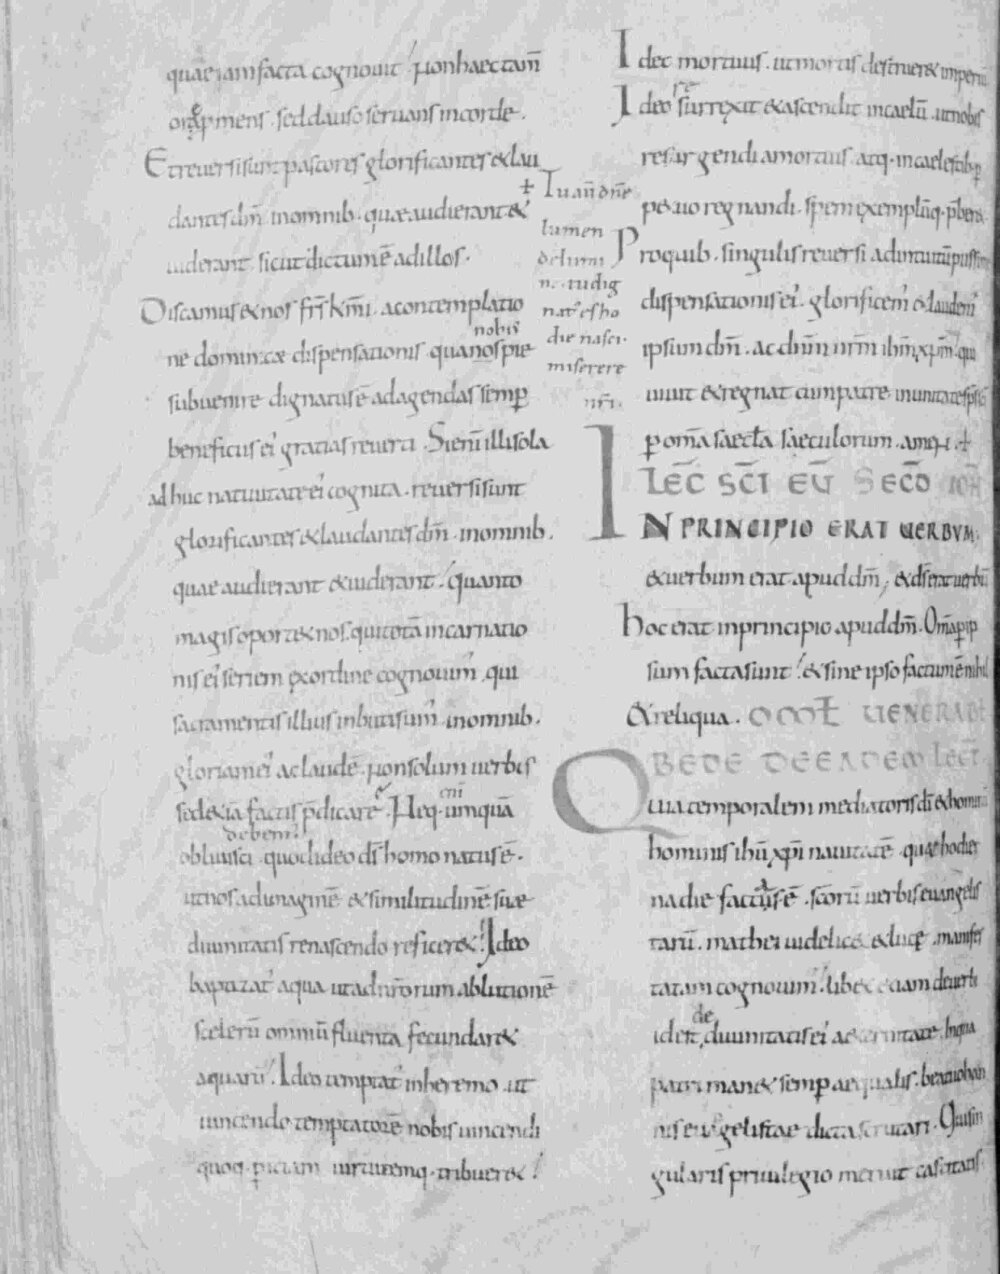 quae iam facta cognouit. non haec tam̄
ore promens. sed clauso seruans in corde.
Et reuersi sunt pastores glorificantes & lau
dantes dm̄. in omnib. quae audierant &
uiderant. sicut dictum ē ad illos.
Discamus & nos frs̄ km̄i. a contemplatio
nobis
ne dominicae dispensationis. qua nos pie
subuenire dignatus ē ad agendas semp
beneficiis ei' gratias reuerti. Si eni illi sola
adhuc natiuitate ei' cognita. reuersi sunt
glorificantes & laudantes dm̄. in omnib.
quae audierant & uiderant. quanto
magis oport& nos. qui totā incarnatio
nis ei' seriem ex ordine cognouim'. qui
sacramentis illius inbuti sum'. in omnib.
gloriam ei' ac laudē. non solum uerbis
sed &iā factis p̄dicare. Neq. umquā
debem'
obliuisci. quod ideo ds̄ homo natus ē.
ut nos ad imaginē & similitudinē suae
diuinitatis renascendo reficer&. Ideo
baptizat' aqua. ut ad nr̄orum ablutionē
scelerū omniū fluenta fecundar&
aquarū. Ideo temptat' in heremo. ut
uincendo temptatorē nobis uincendi
quoq. p̱itiam uirtutemq. tribuer&.
+ Tu aū dn̄e
lumen
n. indig
nat' es ho
die nasci.
miserere
nr̄i.
Ideo mortuus. ut mortis destruer& imperiū
Ideo surrexit & ascendit in caelū. ut nobis
resurgendi a mortuis. atq. in caelestib. p
petuo regnandi. spem exemplūq. pberet
Pro quib. singulis reuersi ad intuitū piissimae
dispensationis ei'. glorificem' & laudem'
ipsum dm̄. ac dnm̄ nrm̄ ihm̄ xpm̄. qui
uiuit & regnat cum patre in unitate sps̄ s̄
p̱ omā saecla saeculorum. amen. +
LEC̄ SC̄I EŪ SECD̄ IOH̄
IN PRINCIPIO ERAT UERBVM.
& uerbum erat apud dm̄, & ds̄ erat uerbū
hoc erat in principio apud dm̄. Om̄a p ip
sum facta sunt. & sine ipso factum ē nihil
& reliqua. OMEŁ UENERABŁ
BEDE DE EADEM LECT̄
Quia temporalem mediatoris dī & hominū
hominis ihū xpi natiuitatē. quae hodier
na die facta ē. scōrū uerbis euangelis
tarū. mathei uidelic& & lucę. manifes
tatam cognouim'. lib& etiam de uerbi
id est de diuinitatis ei' aeternitate. In qua
patri man& semper aequalis. beati iohan
nis euangelistae dicta scrutari. Qui sin
gularis priuilegio meruit castitatis.